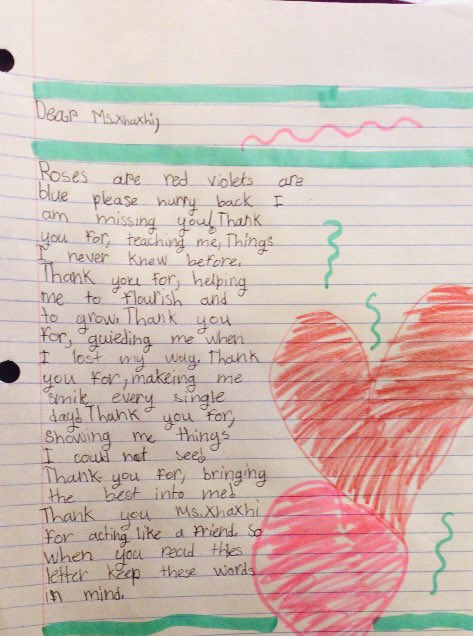 Dear Ms.Xhaxhi,
Roses are red violets are
blue please hurry back I
am missing you! Thank
you for, teaching me, Things
I never knew before.
Thank you for, helping
me to flourish and
to grow. Thank you
for, guieding me when
I lost my way. Thank
you for, makeing me
smile every single
day! Thank you for,
showing me things
I could not see!
Thank you for, bringing
the best into me!
Thank you Ms.Xhaxhi
for acting like a friend. So
when you read thies
letter keep these words
in mind.